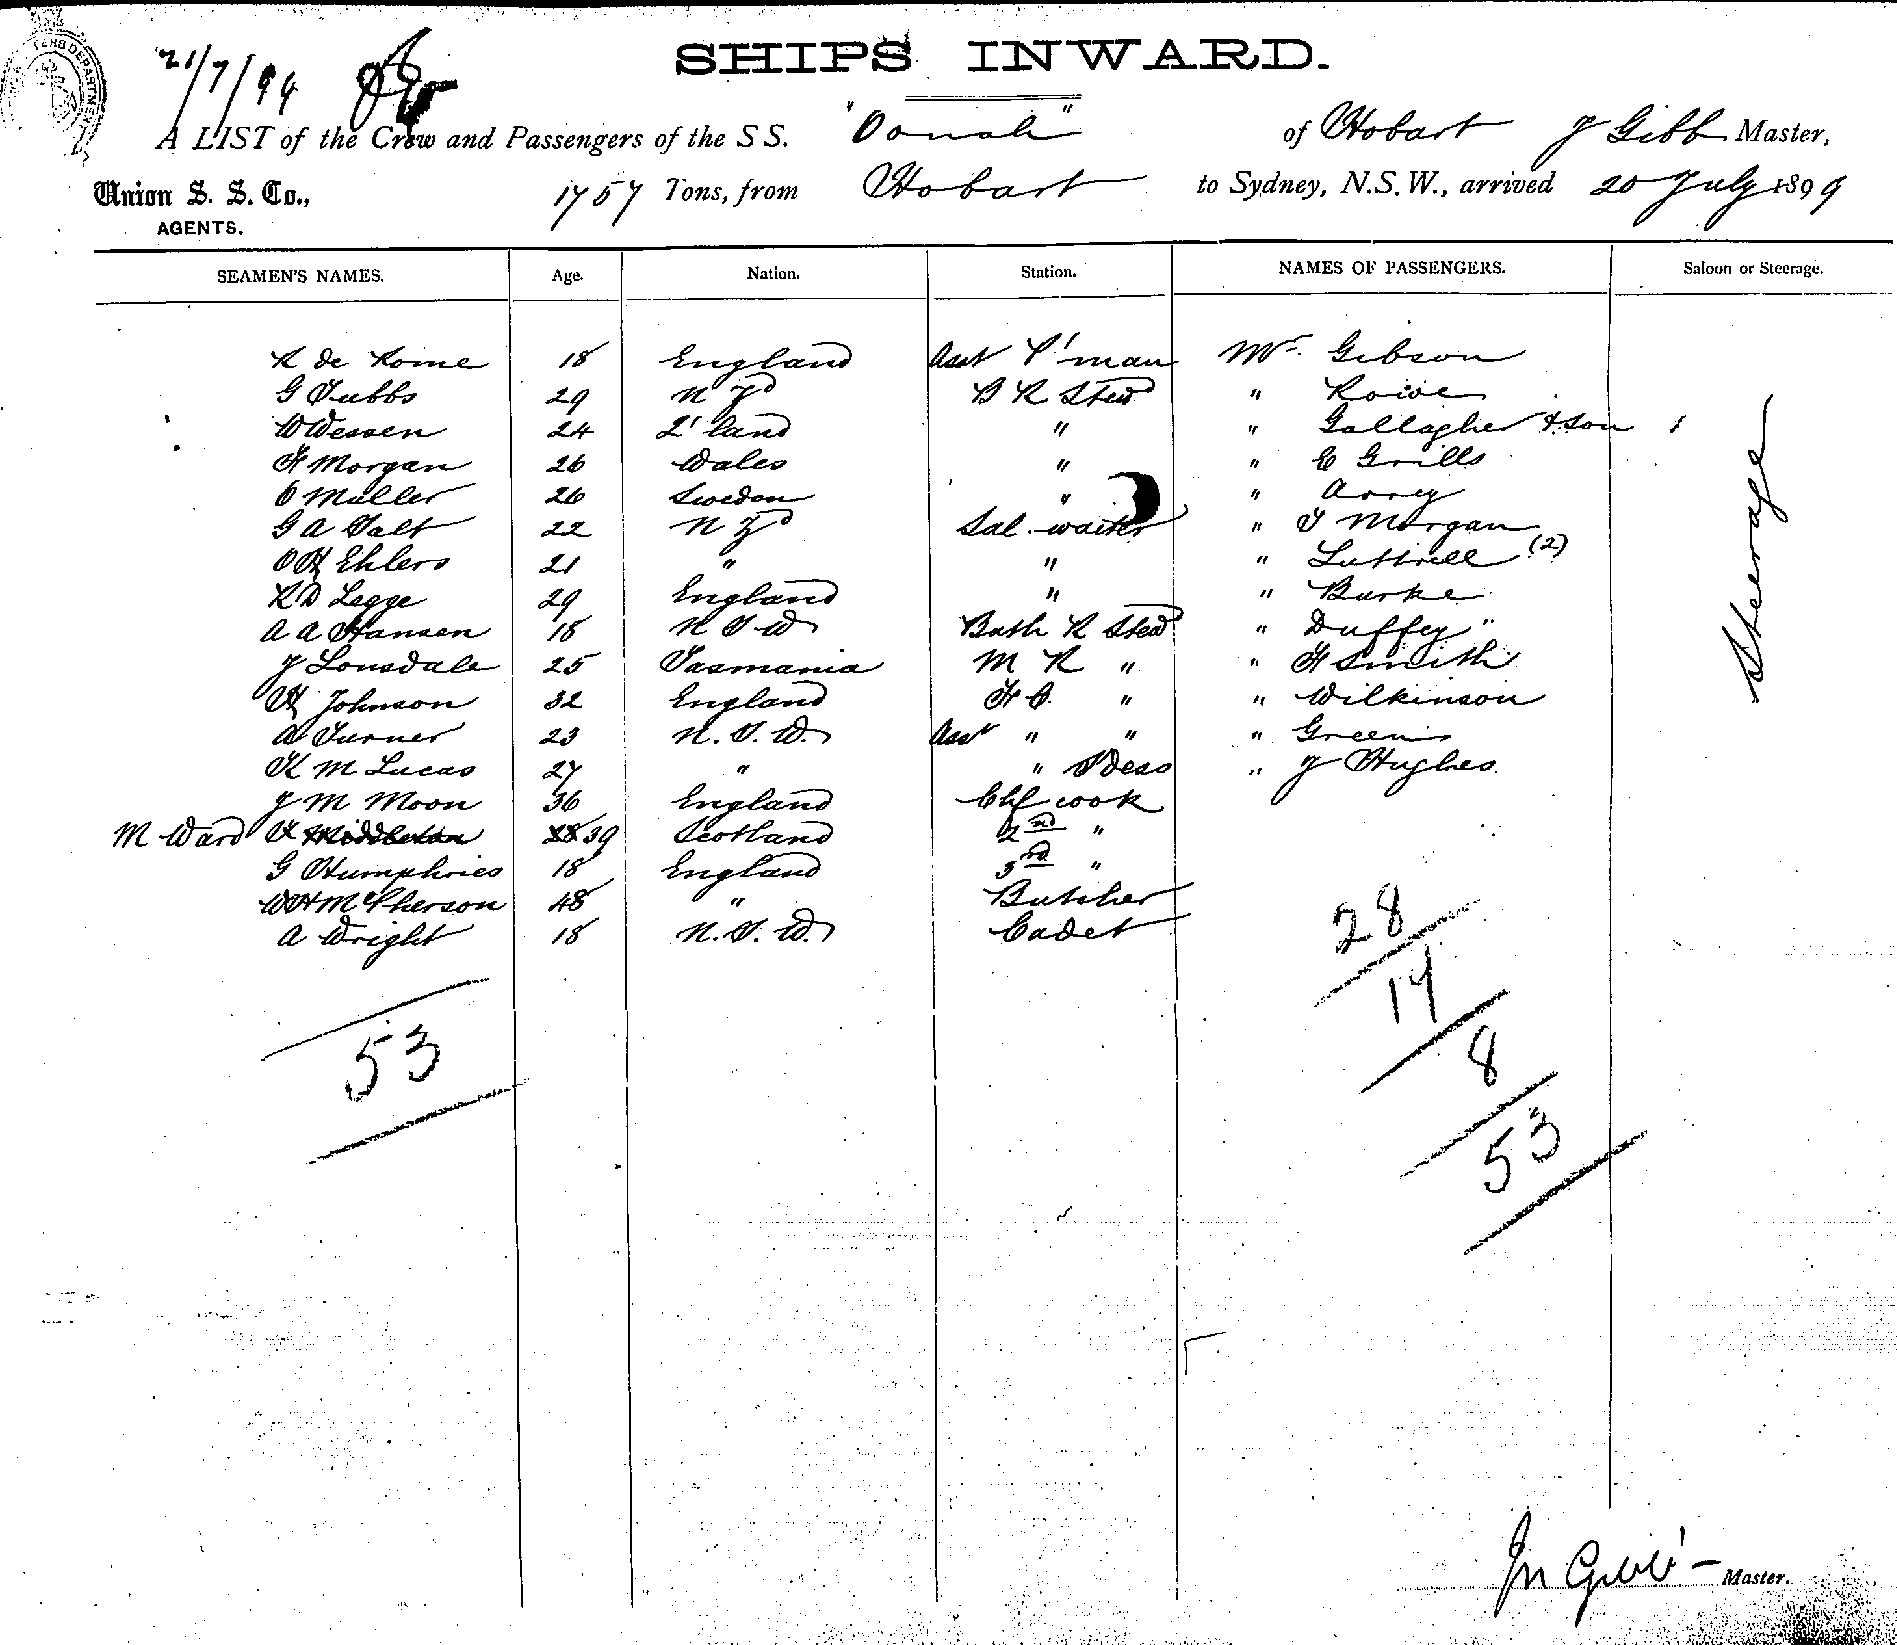 21/7/99
SHIPS INWARD.
A LIST of the Crew and Passengers of the S S. "Oonah" of Hobart J Gibb Master,
Union S. S. Co., 1757 Tons, from Hobart to Sydney, N.S.W., arrived 20 July 1899
AGENTS.
SEAMEN'S NAMES. Age. Nation. Station. NAMES OF PASSENGERS. Saloon or Steerage.
R de Rome 18 England Asst P'man Mr. Gibson
G Tubbs 29 N Zd B R Stewd " Rowe
W Wessen 24 Q'land " " Gallagher & Son 1
H Morgan 26 Wales " " C Grills
O Muller 26 Sweden " "
G A Salt 22 N Zd Sal. waiter " T Morgan
O H Ehlers 21 " " " Luttrell (2)
R D Legge 29 England " " Burke
A A Hansen 18 N S W Bath R Stewd " Duffey "
J Lonsdale 25 Tasmania M R " " H Smith
H Johnson 32 England F C. " " Wilkinson
A Turner 23 N. S. W. Asst " " " Green
K M Lucas 27 " " Stess " J Hughes
J M Moon 36 England Chf cook
M Ward K Middleton 28 39 Scotland 2nd "
G Humphries 18 England 3rd "
W H McPherson 48 " Butcher
A Wright 18 N. S. W. Cadet
Steerage
53
28
17
8
53
Jn Gibb
Master.